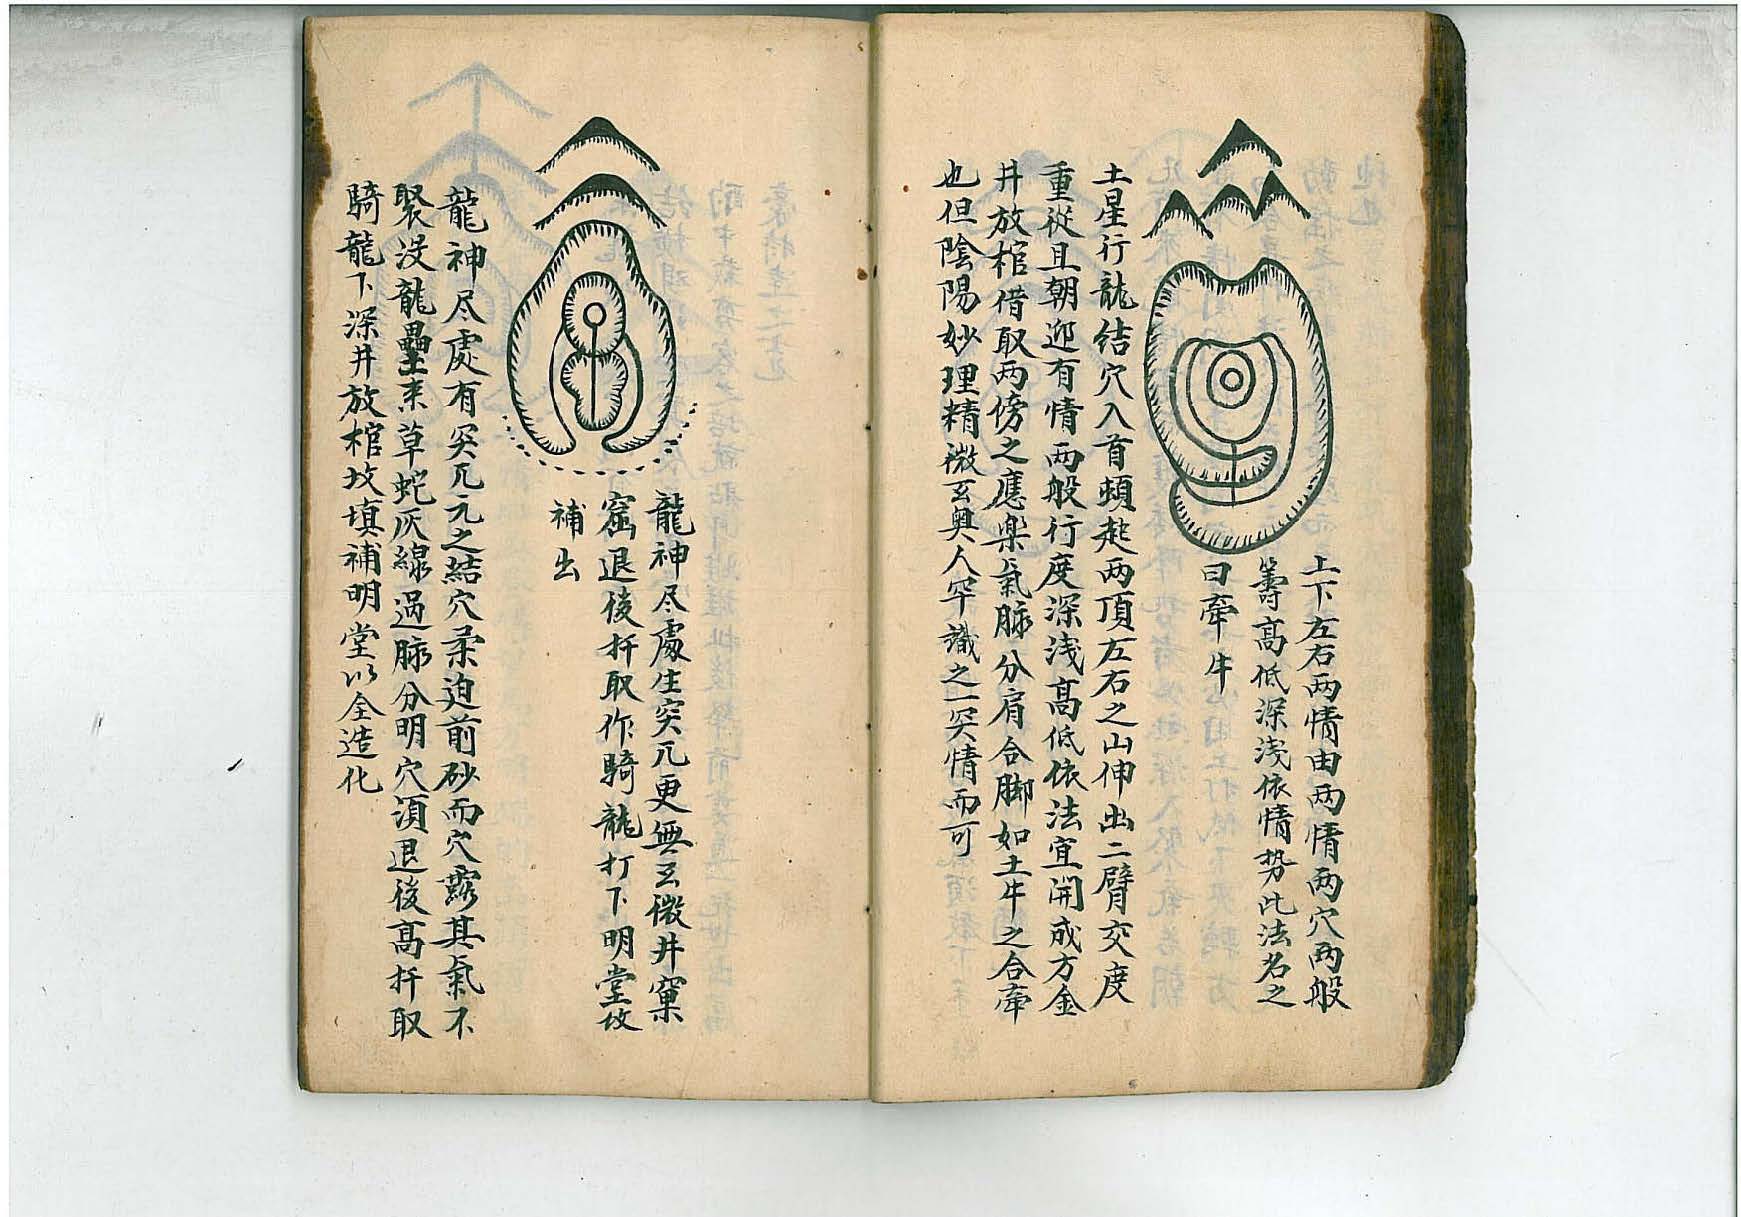 上下左右两情由两情两穴两般
籌高低深浅依情势此法名之
曰牽牛
土星行龍结穴入首頓起两頂左右之山伸出二臂交度
重從且朝迎有情两般行度深浅高低依法宜開成方金
井放棺借取两傍之應樂氣脉分肩合脚如土牛之合牽
也但陰陽妙理精微玄奥人罕識之一突情而可
龍神尽處生突兀更無玄微井窠
窟退後扦取作騎龍打下明堂坟
補出
龍神尽處有突兀兀之结穴柔迫前砂而穴露其氣不
聚没龍壘来草蛇灰線過脉分明穴須退後高扦取
騎龍下深井放棺坟填補明堂以全造化